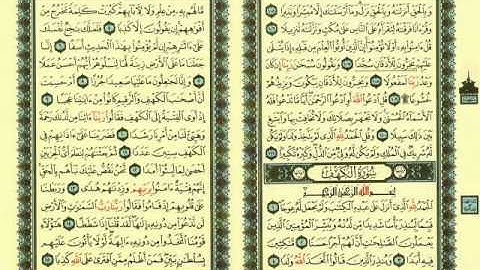 وَبِالْحَقِّ أَنزَلْنَاهُ وَبِالْحَقِّ نَزَلَ وَمَا أَرْسَلْنَاكَ إِلَّا مُبَشِّرًا وَنَذِيرًا ١٠٥
وَقُرْآنًا فَرَقْنَاهُ لِتَقْرَأَهُ عَلَى النَّاسِ عَلَى مُكْثٍ وَنَزَّلْنَاهُ تَنزِيلًا ١٠٦
قُلْ آمِنُوا بِهِ أَوْ لَا تُؤْمِنُوا إِنَّ الَّذِينَ أُوتُوا الْعِلْمَ مِن قَبْلِهِ إِذَا يُتْلَى
عَلَيْهِمْ يَخِرُّونَ لِلْأَذْقَانِ سُجَّدًا ١٠٧ وَيَقُولُونَ سُبْحَانَ رَبِّنَا إِن كَانَ
وَعْدُ رَبِّنَا لَمَفْعُولًا ١٠٨ وَيَخِرُّونَ لِلْأَذْقَانِ يَبْكُونَ وَيَزِيدُهُمْ
خُشُوعًا ١٠٩ قُلِ ادْعُوا اللَّهَ أَوِ ادْعُوا الرَّحْمَنَ أَيًّا مَّا تَدْعُوا فَلَهُ الْأَسْمَاءُ
الْحُسْنَى وَلَا تَجْهَرْ بِصَلَاتِكَ وَلَا تُخَافِتْ بِهَا وَابْتَغِ
بَيْنَ ذَلِكَ سَبِيلًا ١١٠ وَقُلِ الْحَمْدُ لِلَّهِ الَّذِي لَمْ يَتَّخِذْ وَلَدًا وَلَمْ يَكُن
لَّهُ شَرِيكٌ فِي الْمُلْكِ وَلَمْ يَكُن لَّهُ وَلِيٌّ مِّنَ الذُّلِّ وَكَبِّرْهُ تَكْبِيرًا ١١١
سُورَةُ الْكَهْفِ
بِسْمِ اللَّهِ الرَّحْمَنِ الرَّحِيمِ
الْحَمْدُ لِلَّهِ الَّذِي أَنزَلَ عَلَى عَبْدِهِ الْكِتَابَ وَلَمْ يَجْعَل لَّهُ عِوَجًا ١
قَيِّمًا لِّيُنذِرَ بَأْسًا شَدِيدًا مِّن لَّدُنْهُ وَيُبَشِّرَ الْمُؤْمِنِينَ الَّذِينَ
يَعْمَلُونَ الصَّالِحَاتِ أَنَّ لَهُمْ أَجْرًا حَسَنًا ٢ مَّاكِثِينَ
فِيهِ أَبَدًا ٣ وَيُنذِرَ الَّذِينَ قَالُوا اتَّخَذَ اللَّهُ وَلَدًا ٤
مَّا لَهُم بِهِ مِنْ عِلْمٍ وَلَا لِآبَائِهِمْ كَبُرَتْ كَلِمَةً تَخْرُجُ مِنْ
أَفْوَاهِهِمْ إِن يَقُولُونَ إِلَّا كَذِبًا ٥ فَلَعَلَّكَ بَاخِعٌ نَّفْسَكَ
عَلَى آثَارِهِمْ إِن لَّمْ يُؤْمِنُوا بِهَذَا الْحَدِيثِ أَسَفًا ٦ إِنَّا جَعَلْنَا
مَا عَلَى الْأَرْضِ زِينَةً لَّهَا لِنَبْلُوَهُمْ أَيُّهُمْ أَحْسَنُ عَمَلًا
٧ وَإِنَّا لَجَاعِلُونَ مَا عَلَيْهَا صَعِيدًا جُرُزًا ٨ أَمْ حَسِبْتَ
أَنَّ أَصْحَابَ الْكَهْفِ وَالرَّقِيمِ كَانُوا مِنْ آيَاتِنَا عَجَبًا ٩
إِذْ أَوَى الْفِتْيَةُ إِلَى الْكَهْفِ فَقَالُوا رَبَّنَا آتِنَا مِن لَّدُنكَ رَحْمَةً
وَهَيِّئْ لَنَا مِنْ أَمْرِنَا رَشَدًا ١٠ فَضَرَبْنَا عَلَى آذَانِهِمْ فِي
الْكَهْفِ سِنِينَ عَدَدًا ١١ ثُمَّ بَعَثْنَاهُمْ لِنَعْلَمَ أَيُّ الْحِزْبَيْنِ
أَحْصَى لِمَا لَبِثُوا أَمَدًا ١٢ نَّحْنُ نَقُصُّ عَلَيْكَ نَبَأَهُم بِالْحَقِّ
إِنَّهُمْ فِتْيَةٌ آمَنُوا بِرَبِّهِمْ وَزِدْنَاهُمْ هُدًى ١٣ وَرَبَطْنَا
عَلَى قُلُوبِهِمْ إِذْ قَامُوا فَقَالُوا رَبُّنَا رَبُّ السَّمَاوَاتِ وَالْأَرْضِ
لَن نَّدْعُوَ مِن دُونِهِ إِلَهًا لَّقَدْ قُلْنَا إِذًا شَطَطًا ١٤ هَؤُلَاءِ
قَوْمُنَا اتَّخَذُوا مِن دُونِهِ آلِهَةً لَّوْلَا يَأْتُونَ عَلَيْهِم
بِسُلْطَانٍ بَيِّنٍ فَمَنْ أَظْلَمُ مِمَّنِ افْتَرَى عَلَى اللَّهِ كَذِبًا ١٥